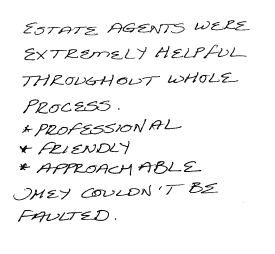 ESTATE AGENTS WERE
EXTREMELY HELPFUL
THROUGHOUT WHOLE
PROCESS.
* PROFESSIONAL
* FRIENDLY
* APPROACHABLE
THEY COULDN'T BE
FAULTED.